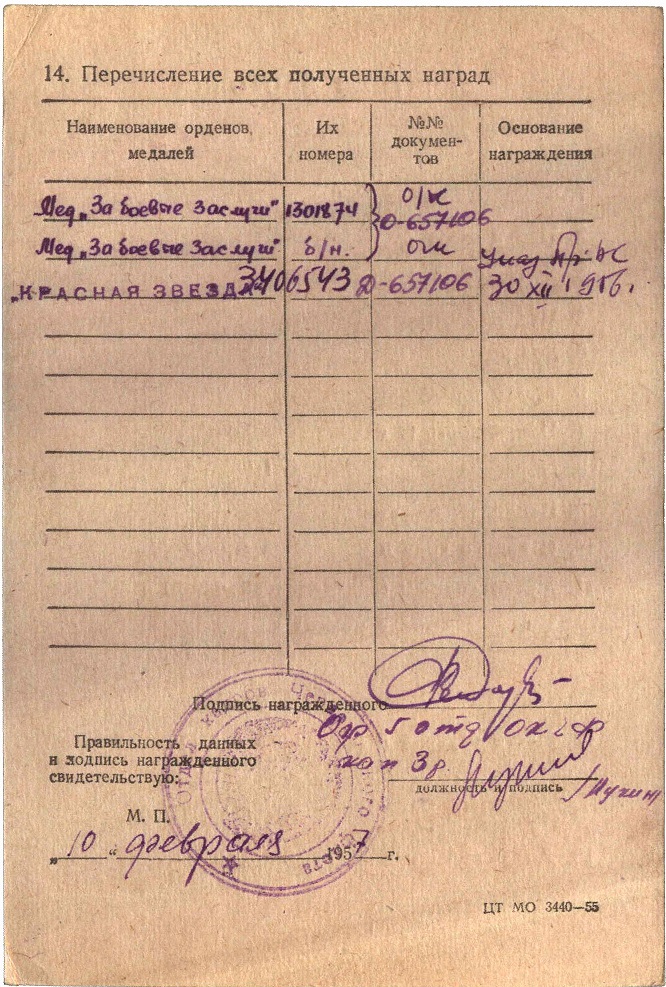 14. Перечисление всех полученных наград
Наименование орденов, медалей
Их номера
№№ докумен-тов
Основание награждения
Мед „За боевые заслуги" 1301874 о/к Д-657106
Мед „За боевые заслуги" б/н.
„КРАСНАЯ ЗВЕЗДА" 3406543 Д-657106 Указ 30 XII 1956.
Подпись награжденного
Правильность данных
и подпись награжденного
свидетельствую:
должность и подпись
М. П.
„10" февраля 1957 г.
ЦТ МО 3440—55
Отдел кадров